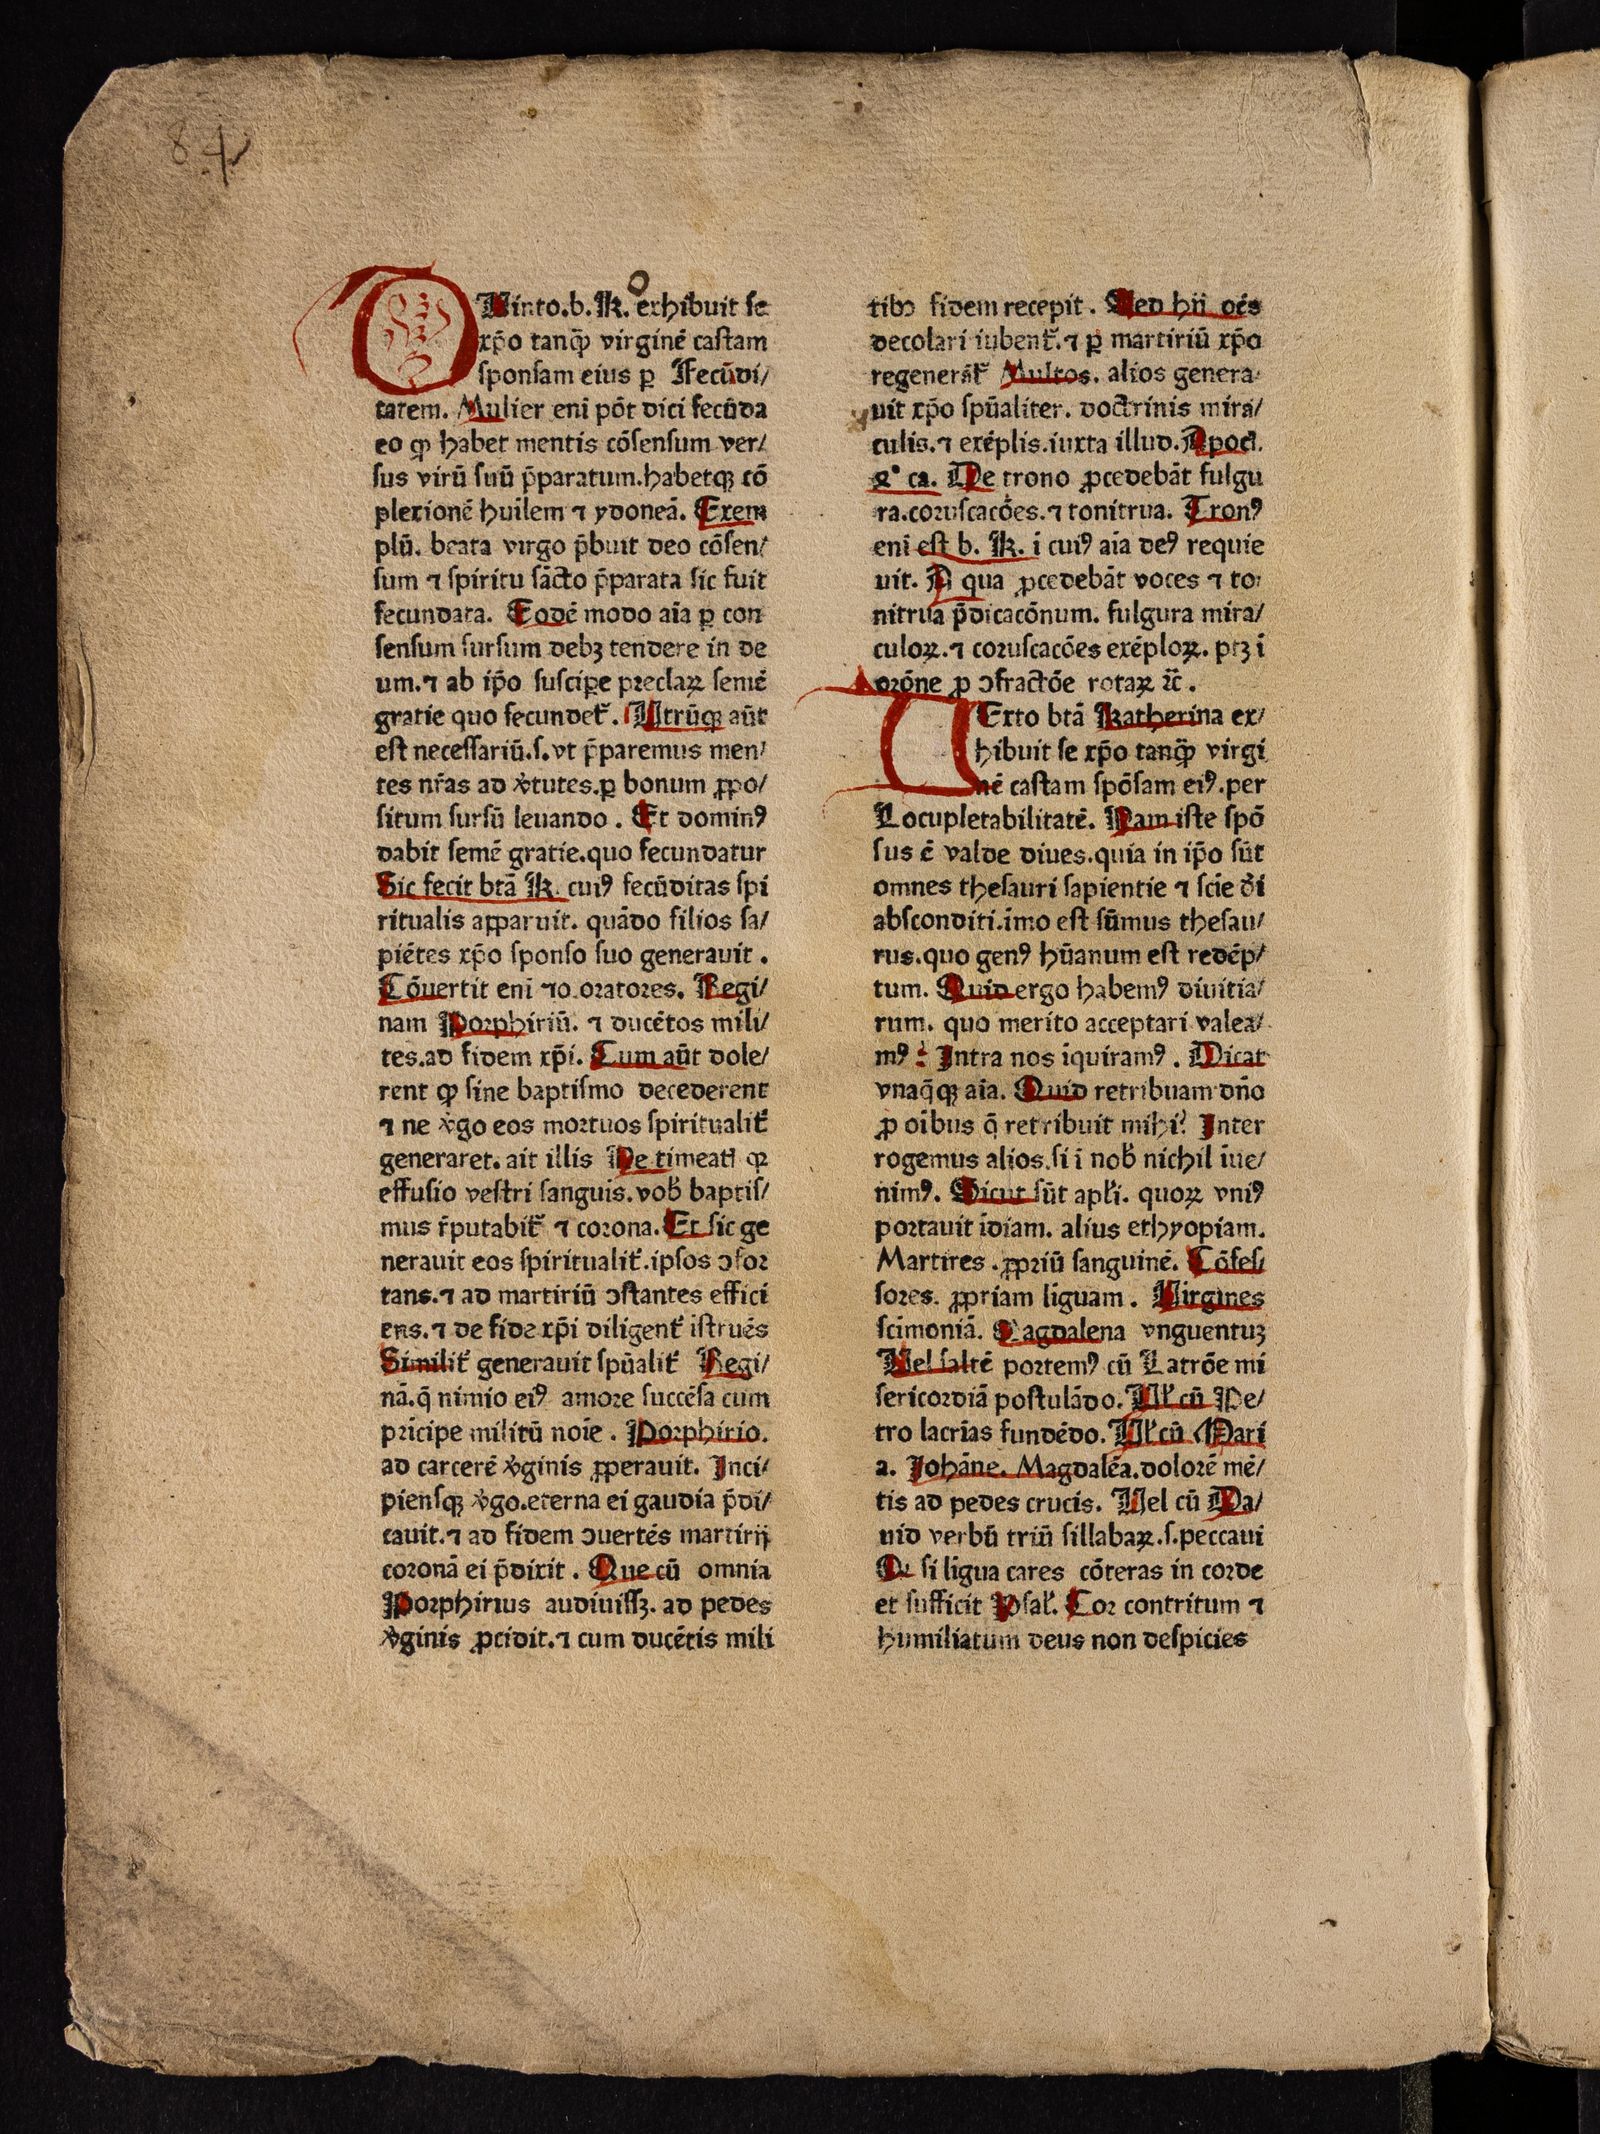 84
QUinto.b.K. exhibuit se
xp̄o tanq̄ȝ virginē castam
sponsam eius ꝑ Fecūdi/
tatem. Mulier eni pōt dici fecūda
eo ꝙ habet mentis cōsensum ver/
sus virū suū p̄paratum.habetqȝ cō
plexionē huilem ⁊ ydoneā. Exem
plū. beata virgo p̄buit deo cōsen/
sum ⁊ spiritu sācto p̄parata sic fuit
fecundata. Eodē modo aīa ꝑ con
sensum sursum debȝ tendere in de
um.⁊ ab ip̄o suscipe preclaꝝ semē
gratie quo fecundet᷑. Utrūqȝ aūt
est necessariū.s.vt p̄paremus men/
tes nr̄as ad v̓tutes.ꝑ bonum ꝓpo/
situm sursū leuando . Et dominꝰ
dabit semē gratie.quo fecundatur
Sic fecit btā K. cuiꝰ fecūditas spi
ritualis apparuit. quādo filios sa/
piētes xp̄o sponso suo generauit .
Cōuertit eni ⁊o.oratores. Regi/
nam Porphiriū. ⁊ ducētos mili/
tes.ad fidem xp̄i. Cum aūt dole/
rent ꝙ sine baptismo decederent
⁊ ne v̓go eos mortuos spiritualit᷑
generaret. ait illis Ne timeatꝭ qꝛ
effusio vestri sanguis.vob̓ baptis/
mus r̄putabit᷑ ⁊ corona. Et sic ge
nerauit eos spiritualit᷑.ipsos ꝯfor
tans.⁊ ad martiriū ꝯstantes effici
ens.⁊ de fide xp̄i diligent᷑ istruēs
Similit᷑ generauit spūalit᷑ Regi/
nā.q̄ nimio eiꝰ amore succēsa cum
pricipe militū noīe . Porphirio.
ad carcerē v̓ginis ꝓperauit. Inci/
piensqȝ v̓go.eterna ei gaudia p̄di/
cauit.⁊ ad fidem ꝯuertēs martirij
coronā ei p̄dixit . Que cū omnia
Porphirius audiuissȝ. ad pedes
v̓ginis ꝓcidit.⁊ cum ducētis mili
tibꝯ fidem recepit . Sed hii oēs
decolari iubent᷑.⁊ ꝑ martiriū xp̄o
regenerāt᷑ Multos. alios genera/
uit xp̄o spūaliter. doctrinis mira/
culis.⁊ exēplis.iuxta illud.Apocꝭ.
4° ca. De trono ꝓcedebāt fulgu
ra.coruscacōes.⁊ tonitrua. Tronꝰ
eni est b. K. i cuiꝰ aīa deꝰ requie
uit. A qua ꝓcedebāt voces ⁊ to/
nitrua p̄dicacōnum. fulgura mira/
culoꝝ.⁊ coruscacōes exēploꝝ. ptȝ ī
orōne ꝑ ꝯfractōe rotaꝝ ⁊c̄.
SExto btā Katherina ex/
hibuit se xp̄o tanq̄ȝ virgi
nē castam spōsam eiꝰ.per
Locupletabilitatē. Nam iste spō
sus ē valde diues.quia in ip̄o sūt
omnes thesauri sapientie ⁊ scīe dī
absconditi.imo est sūmus thesau/
rus.quo genꝰ hūanum est redēp/
tum. Quid ergo habemꝰ diuitia/
rum. quo merito acceptari valea/
mꝰ : Intra nos iquiramꝰ . Dicat
vnaq̄qȝ aīa. Quid retribuam dn̄o
ꝓ oībus q̄ retribuit mihi? Inter
rogemus alios.si i nob̓ nichil iue/
nimꝰ. Sicut sūt apl̄i. quoꝝ vniꝰ
portauit īdiam. alius ethyopiam.
Martires .ꝓpriū sanguinē. Cōfes/
sores. ꝓpriam liguam . Virgines
scīmoniā. Magdalena vnguentuȝ
Uel saltē portemꝰ cū Latrōe mi
sericordiā postulādo. Ul̓ cū Pe/
tro lacrīas fundēdo. Ul̓ cū Mari
a. Johāne. Magdalēa.dolorē mē/
tis ad pedes crucis. Uel cū Da/
uid verbū triū sillabaꝝ.s.peccaui
Qꝛ si ligua cares cōteras in corde
et sufficit Psal̓. Cor contritum ⁊
humiliatum deus non despicies